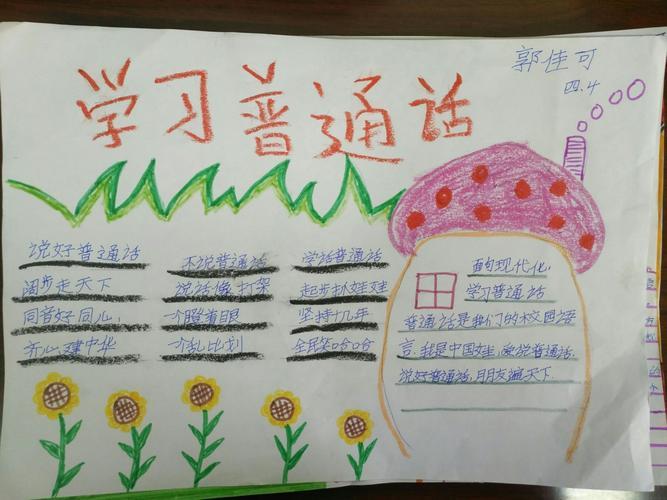 学习普通话
郭佳可
四.4
说好普通话
阔步走天下
同音好同心,
齐心建中华
不说普通话
说话像打架
个瞪着眼
个乱比划
学话普通话
起步扒娃娃
坚持十几年
全民笑哈哈
面向现代化,
学习普通话
普通话是我们的校园语
言,我是中国娃,爱说普通话
说好普通话,朋友遍天下